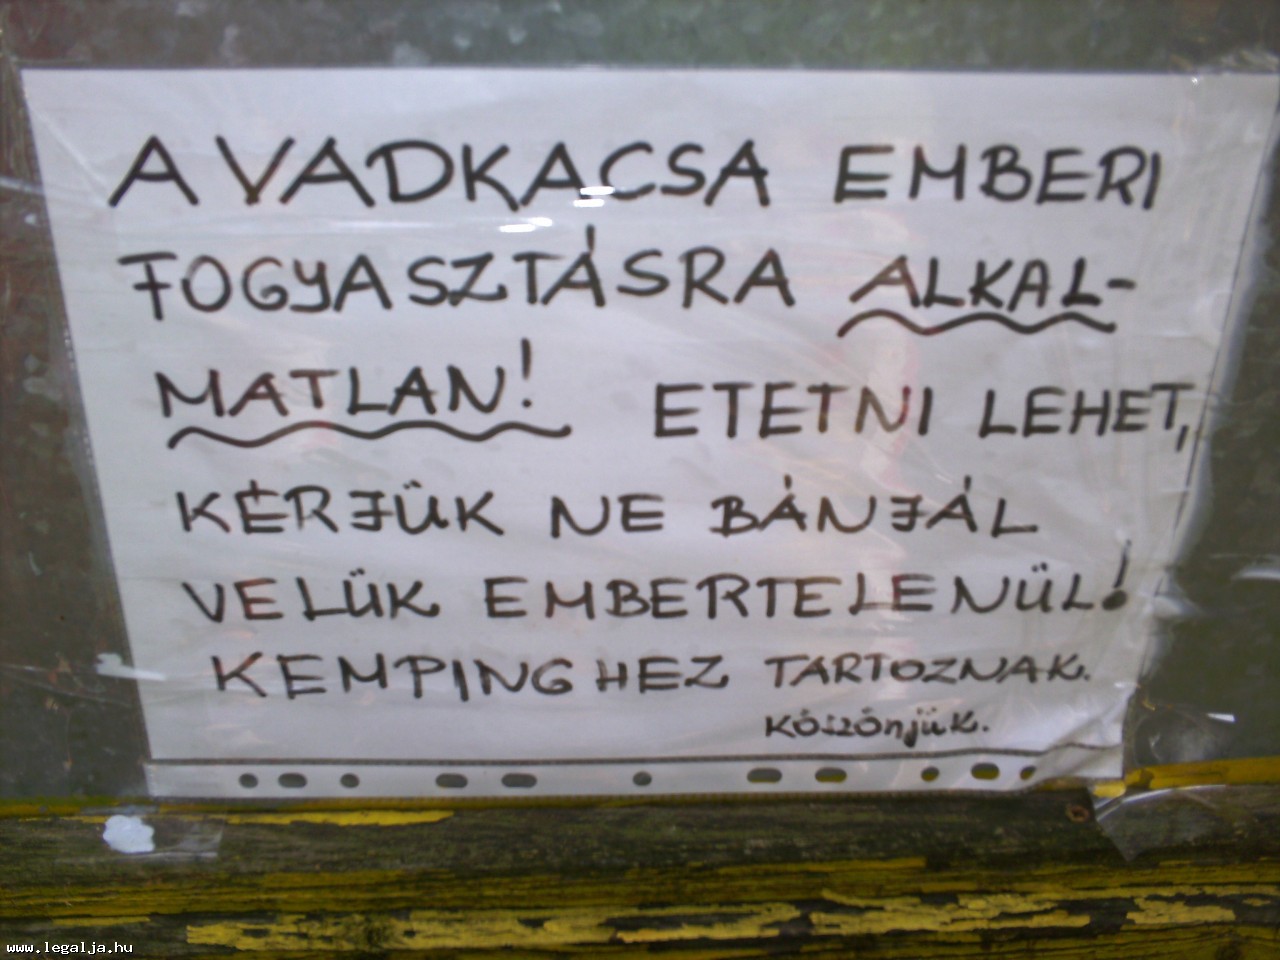 A VADKACSA EMBERI
FOGYASZTÁSRA ALKAL-
MATLAN! ETETNI LEHET,
KÉRJÜK NE BÁNJÁL
VELÜK EMBERTELENÜL!
KEMPINGHEZ TARTOZNAK.
KÖSZÖNJÜK.
www.legalja.hu